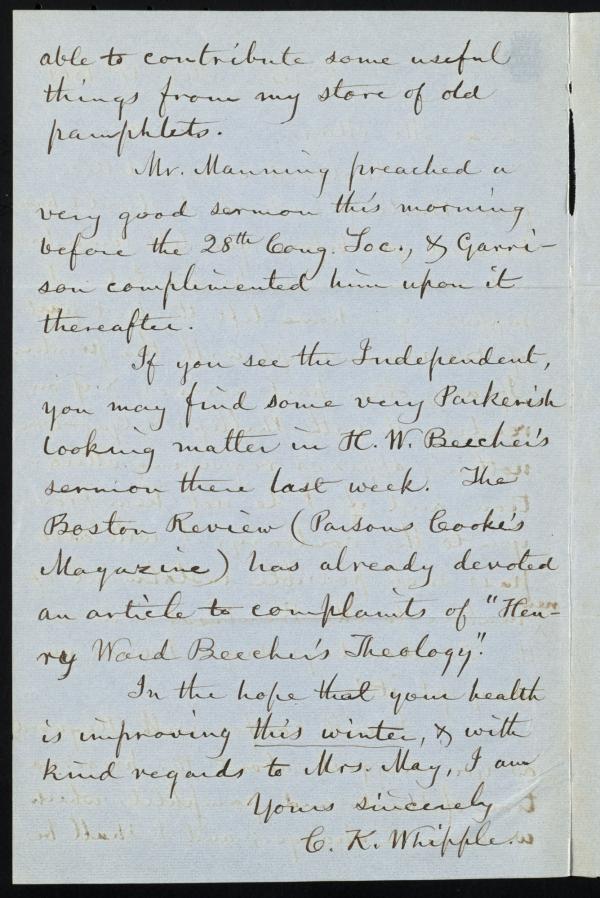 able to contribute some useful
things from my store of old
pamphlets.
Mr. Manning preached a
very good sermon this morning
before the 28th Cong. Soc., & Garri-
son complimented him upon it
thereafter.
If you see the Independent,
you may find some very Parkerish
looking matter in H. W. Beecher's
sermon there last week. The
Boston Review (Parsons Cooke's
Magazine) has already devoted
an article to complaints of "Hen-
ry Ward Beecher's Theology".
In the hope that your health
is improving this winter, & with
kind regards to Mrs. May, I am
Yours sincerely
C. K. Whipple.